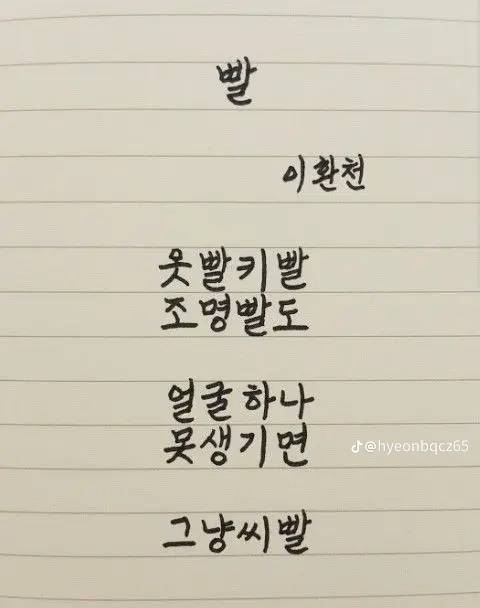 빨
이환천
옷빨키빨
조명빨도
얼굴하나
못생기면
@hyeonbqcz65
그냥씨빨